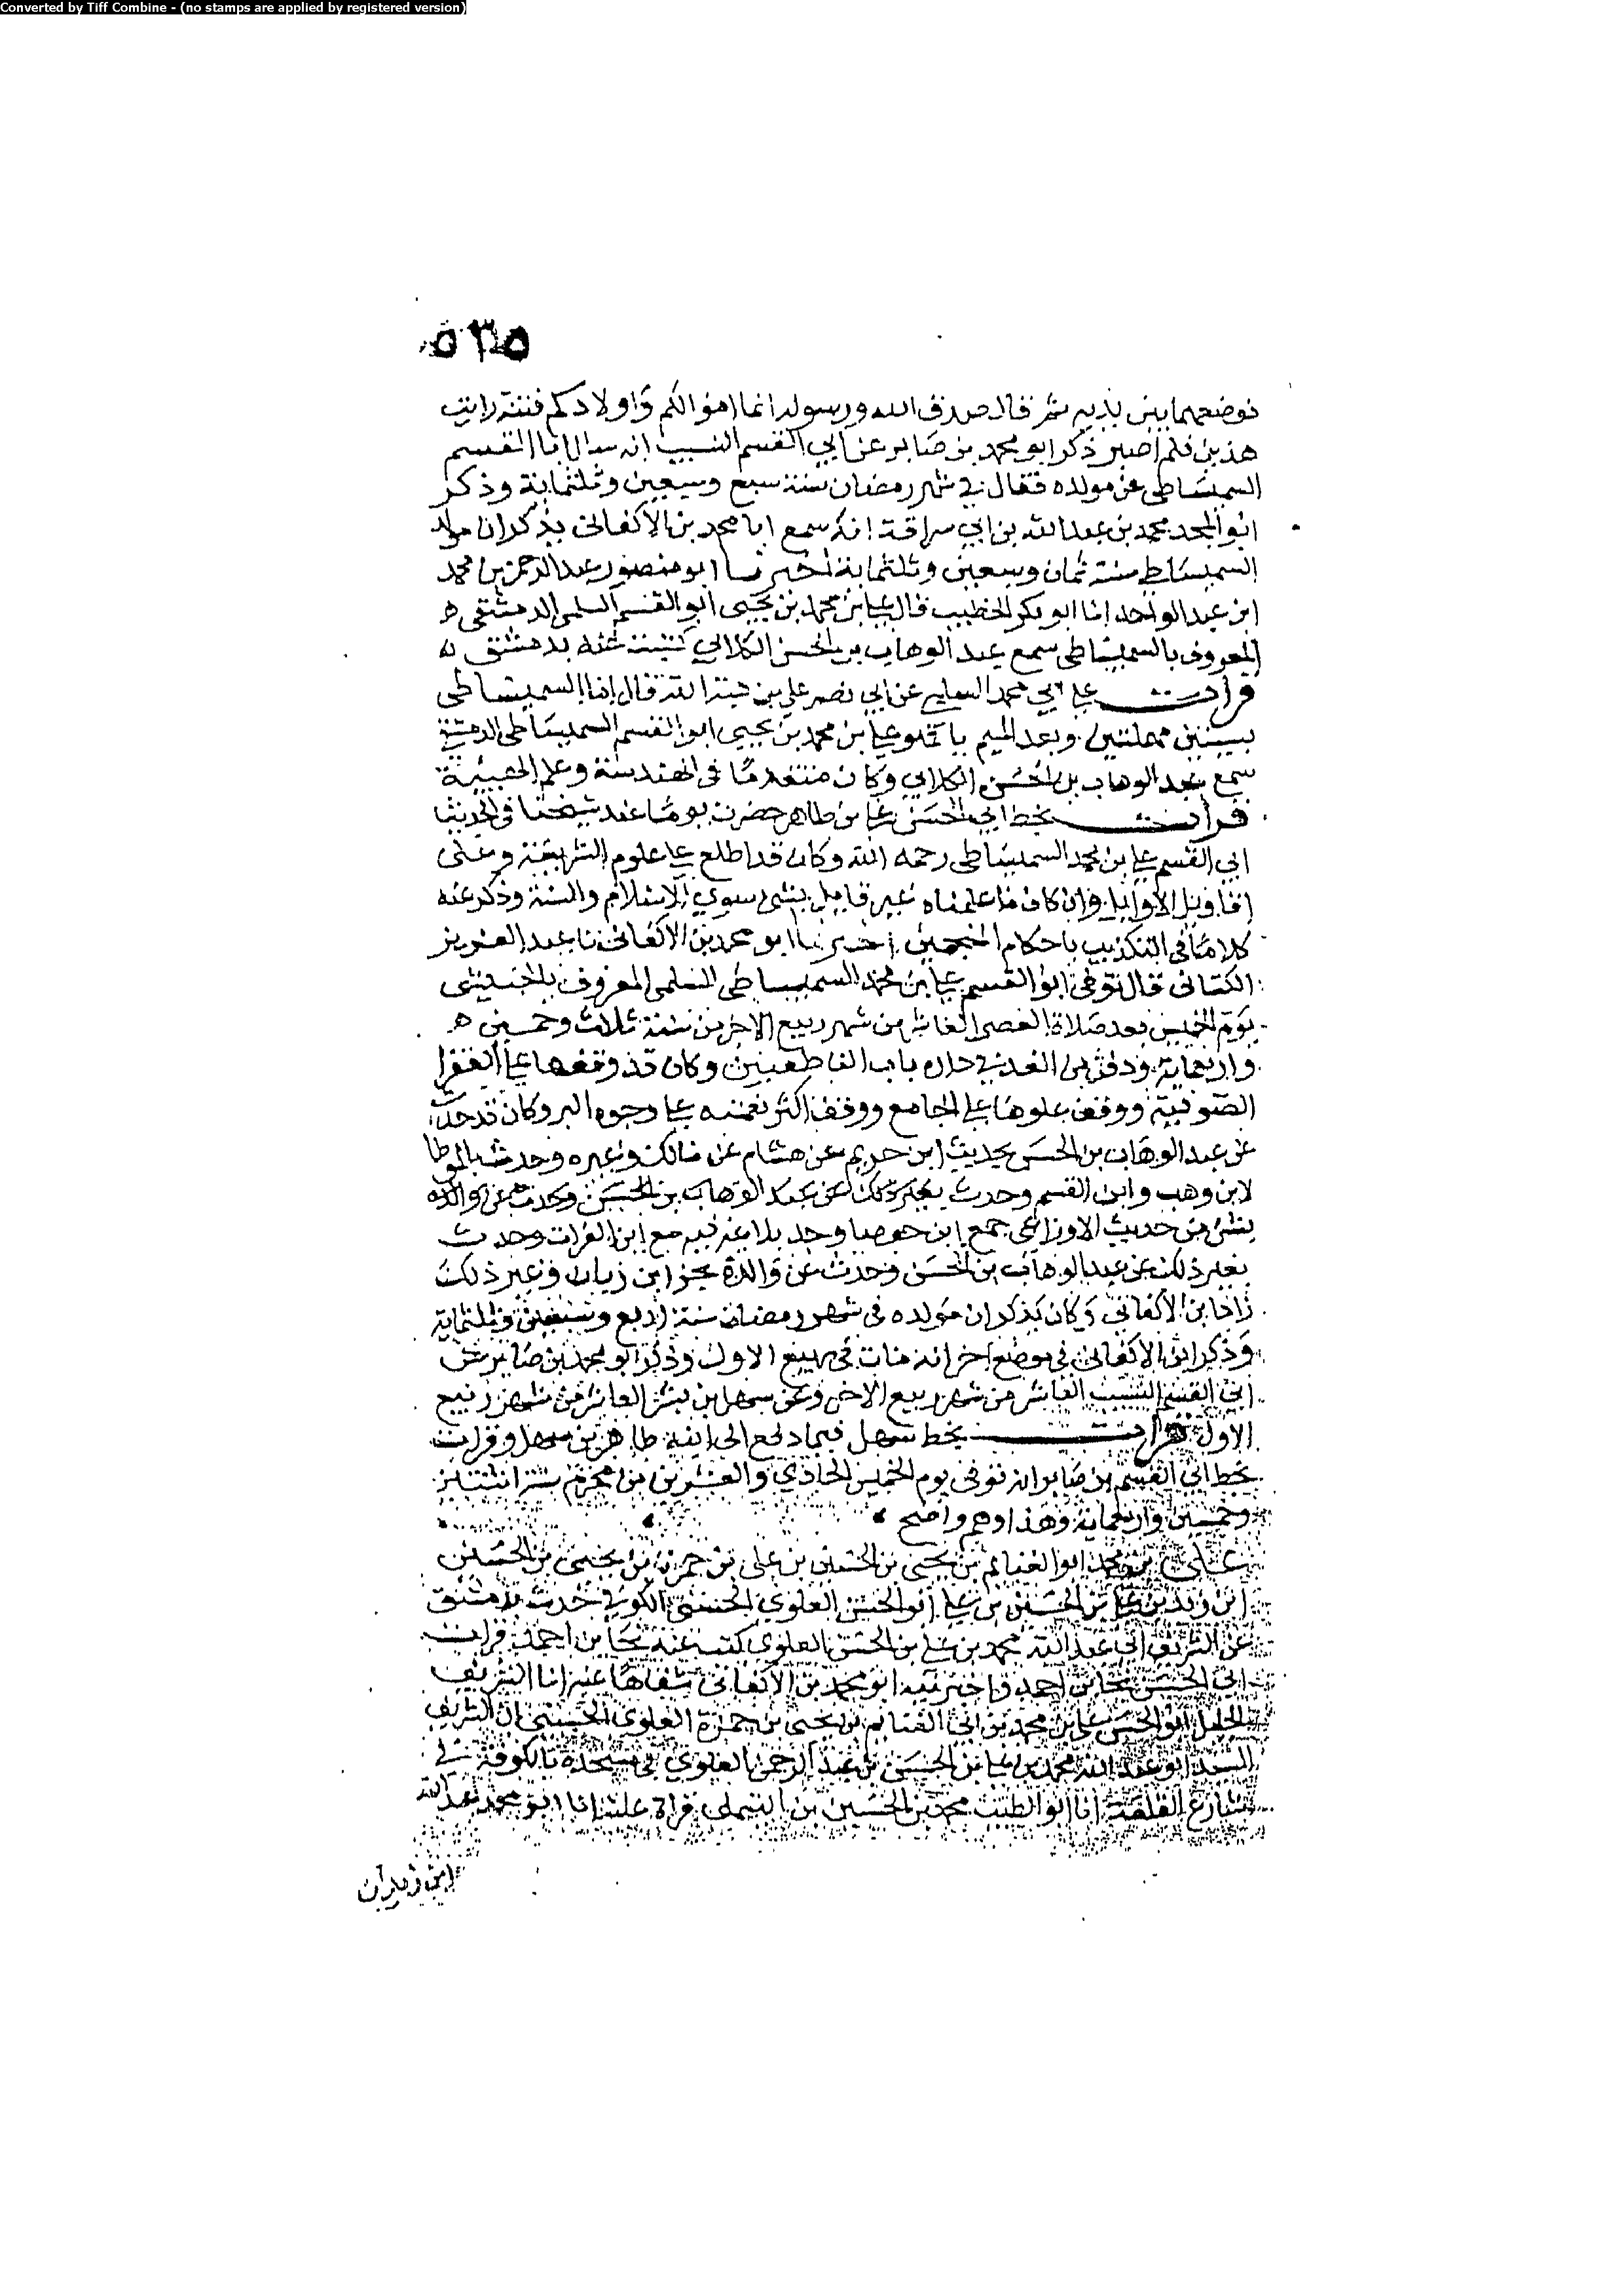 Converted by Tiff Combine - (no stamps are applied by registered version)
٥٣٥
فوضعهما بين يديه ثم قال صدق الله ورسوله انما اموالكم واولادكم فتنة رايت
هذين فلم اصبر ذكر ابو محمد بن صابر عن ابي القسم النسيب انه سال ابا القسم
السميساطي عن مولده فقال في شهر رمضان سنة سبع وسبعين وثلثماية وذكر
ابو المجد محمد بن عبد الله بن ابي سراقة انه سمع ابا محمد بن الاكفاني يذكر ان مولد
السميساطي سنة ثمان وسبعين وثلثماية اخبرنا ابو منصور عبد الرحمن بن محمد
ابن عبد الواحد انا ابو بكر الخطيب قال علي بن محمد بن يحيى ابو القسم السلمي الدمشقي
المعروف بالسميساطي سمع عبد الوهاب بن الحسن الكلابي كتبت عنه بدمشق
قرات على ابي محمد السلمي عن ابي نصر علي بن هبة الله قال اما السميساطي
بسينين مهملتين وبعد الميم يا فهو علي بن محمد بن يحيى ابو القسم السميساطي الدمشقي
سمع عبد الوهاب بن الحسن الكلابي وكان متقدما في الهندسة وعلم الهيئة
قرات بخط ابي الحسن علي بن طاهر حضرت يوما عند شيخنا في الحديث
ابي القسم علي بن محمد السميساطي رحمه الله وكان قد اطلع على علوم الشريعة وعلى
اقاويل الاوايل وان كان ما علمناه غير قايل بشي سوى الاسلام والسنة وذكر عنه
كلاما في التكذيب باحكام المنجمين اخبرنا ابو محمد بن الاكفاني نا عبد العزيز
الكتاني قال توفي ابو القسم علي بن محمد السميساطي السلمي المعروف
يوم الخميس بعد صلاة العصر العاشر من شهر ربيع الاخر من سنة ثلاث وخمسين
واربعماية ودفن من الغد في داره باب الناطفيين وكان قد وقفها على الفقرا
الصوفية ووقف علوها على الجامع ووقف اكثر نعمته على وجوه البر وكان قد حدث
عن عبد الوهاب بن الحسن بحديث ابن خريم عن هشام عن مالك وغيره وحدث بالموطا
لابن وهب وابن القسم وحدث بغير ذلك عن عبد الوهاب بن الحسن وحدث عن والده
بشي من حديث الاوزاعي جمع ابن جوصا وحدث
بغير ذلك عن عبد الوهاب بن الحسن وحدث عن والده بجزء ابن زبان وغير ذلك
زاد ابن الاكفاني وكان يذكر ان مولده في شهر رمضان سنة اربع وسبعين وثلثماية
وذكر ابن الاكفاني في موضع اخر انه مات في ربيع الاول وذكر ابو محمد بن صابر عن
ابي القسم النسيب العاشر من شهر ربيع الاخر وعن سهل بن بشر العاشر من شهر ربيع
الاول قرات بخط سهل فيما دفع الي ابنه طاهر بن سهل وقرات
بخط ابي القسم بن صابر انه توفي يوم الخميس الحادي والعشرين من محرم سنة اثنتين
وخمسين واربعماية وهذا وهم واضح
علي بن محمد ابو الغنايم بن يحيى بن الحسين بن علي بن حمزة بن يحيى بن الحسين
ابن زيد بن علي بن الحسين بن علي ابو الحسن العلوي الحسيني الكوفي حدث بدمشق
عن الشريف ابي عبد الله محمد بن علي بن الحسن العلوي كتب عنه نجا بن احمد قرات
ابي الحسن نجا بن احمد واخبرنيه ابو محمد بن الاكفاني شفاها عنه انا الشريف
الجليل ابو الحسن علي بن محمد بن ابي الغنايم بن يحيى بن حمزة العلوي الحسيني ان الشريف
السيد ابو عبد الله محمد بن علي بن الحسن بن عبد الرحمن العلوي في مسجده بالكوفة في
شارع القلعة انا ابو الطيب محمد بن الحسين بن التيملي قراة عليه انا ابو محمد عبد الله
ابن زيدان